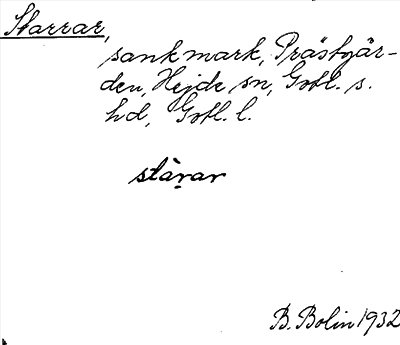 Starrar,
sank mark, Prästgår-
den, Hejde sn, Gotl. s.
hd, Gotl. l.
stàrar
B. Bolin 1932